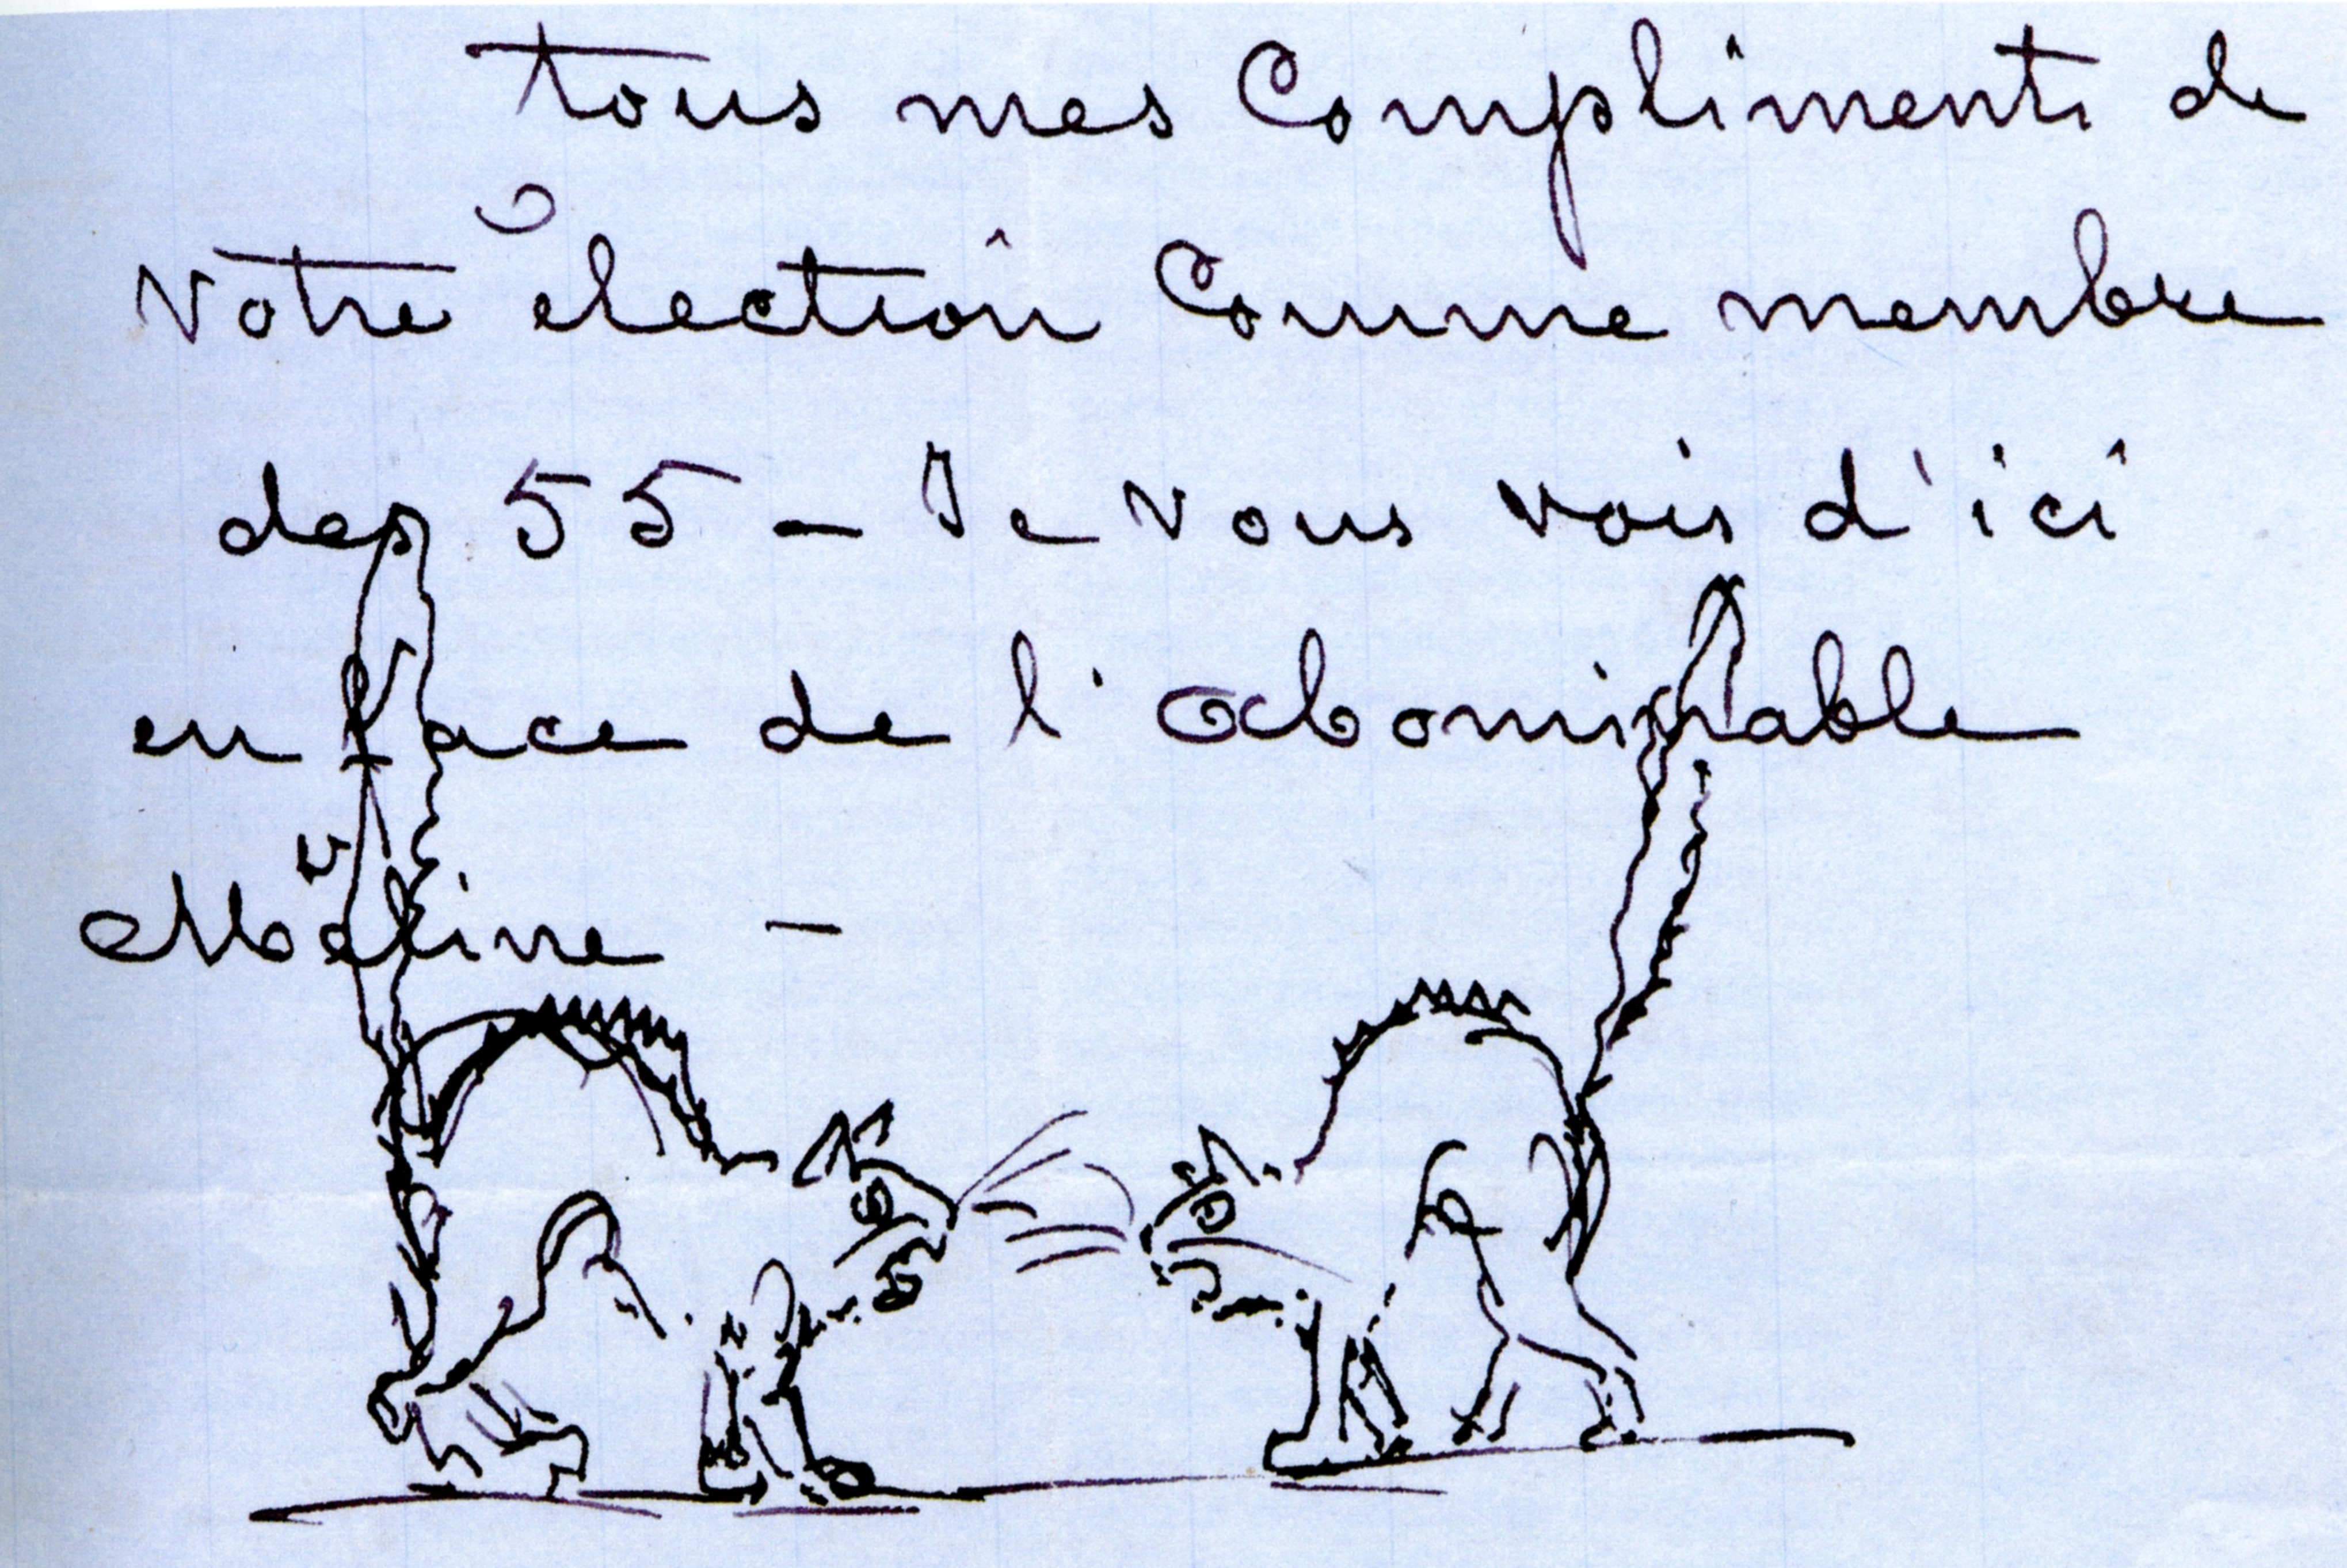 tous mes Compliments de
votre élection Comme membre
des 55 – Je vous vois d'ici
en face de l'abominable
Méline –